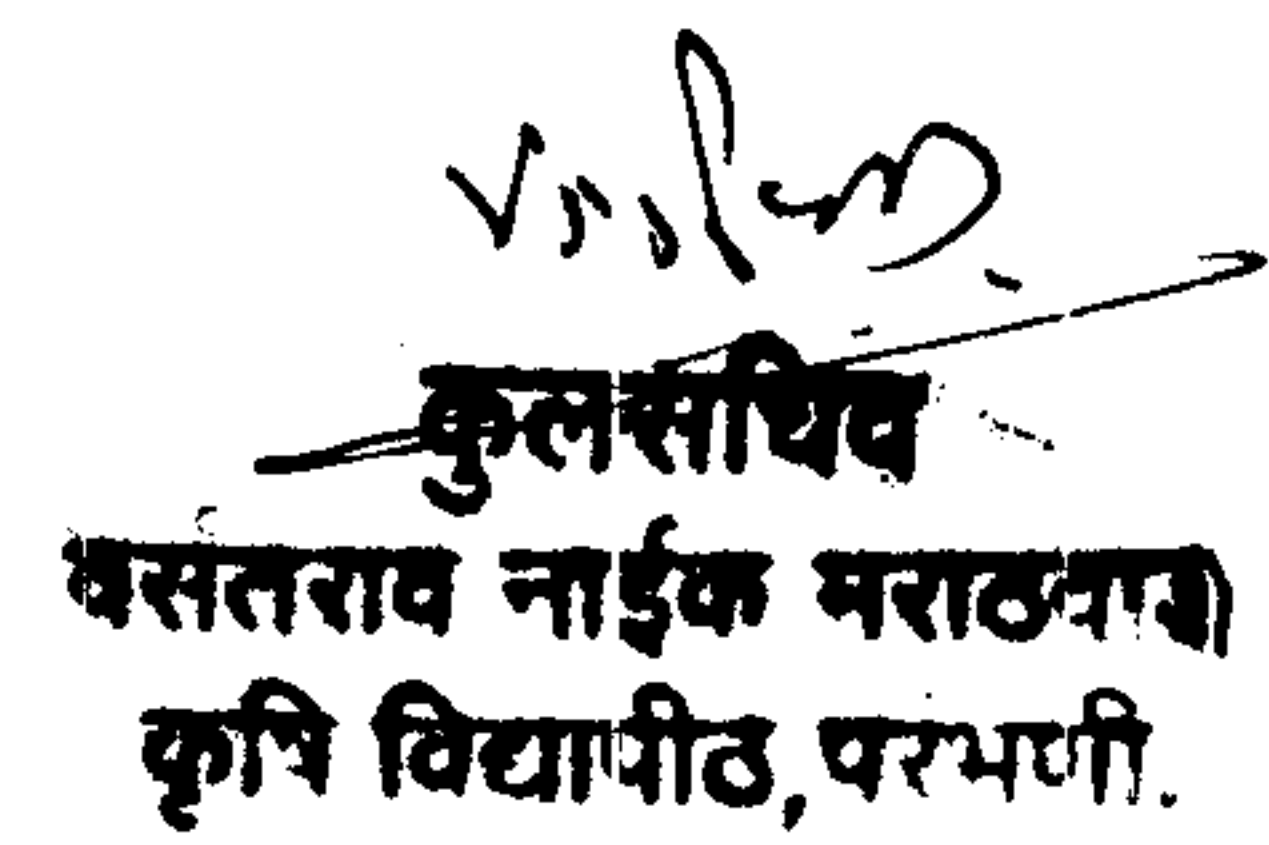 कुलसचिव
वसंतराव नाईक मराठवाडा
कृषि विद्यापीठ, परभणी.